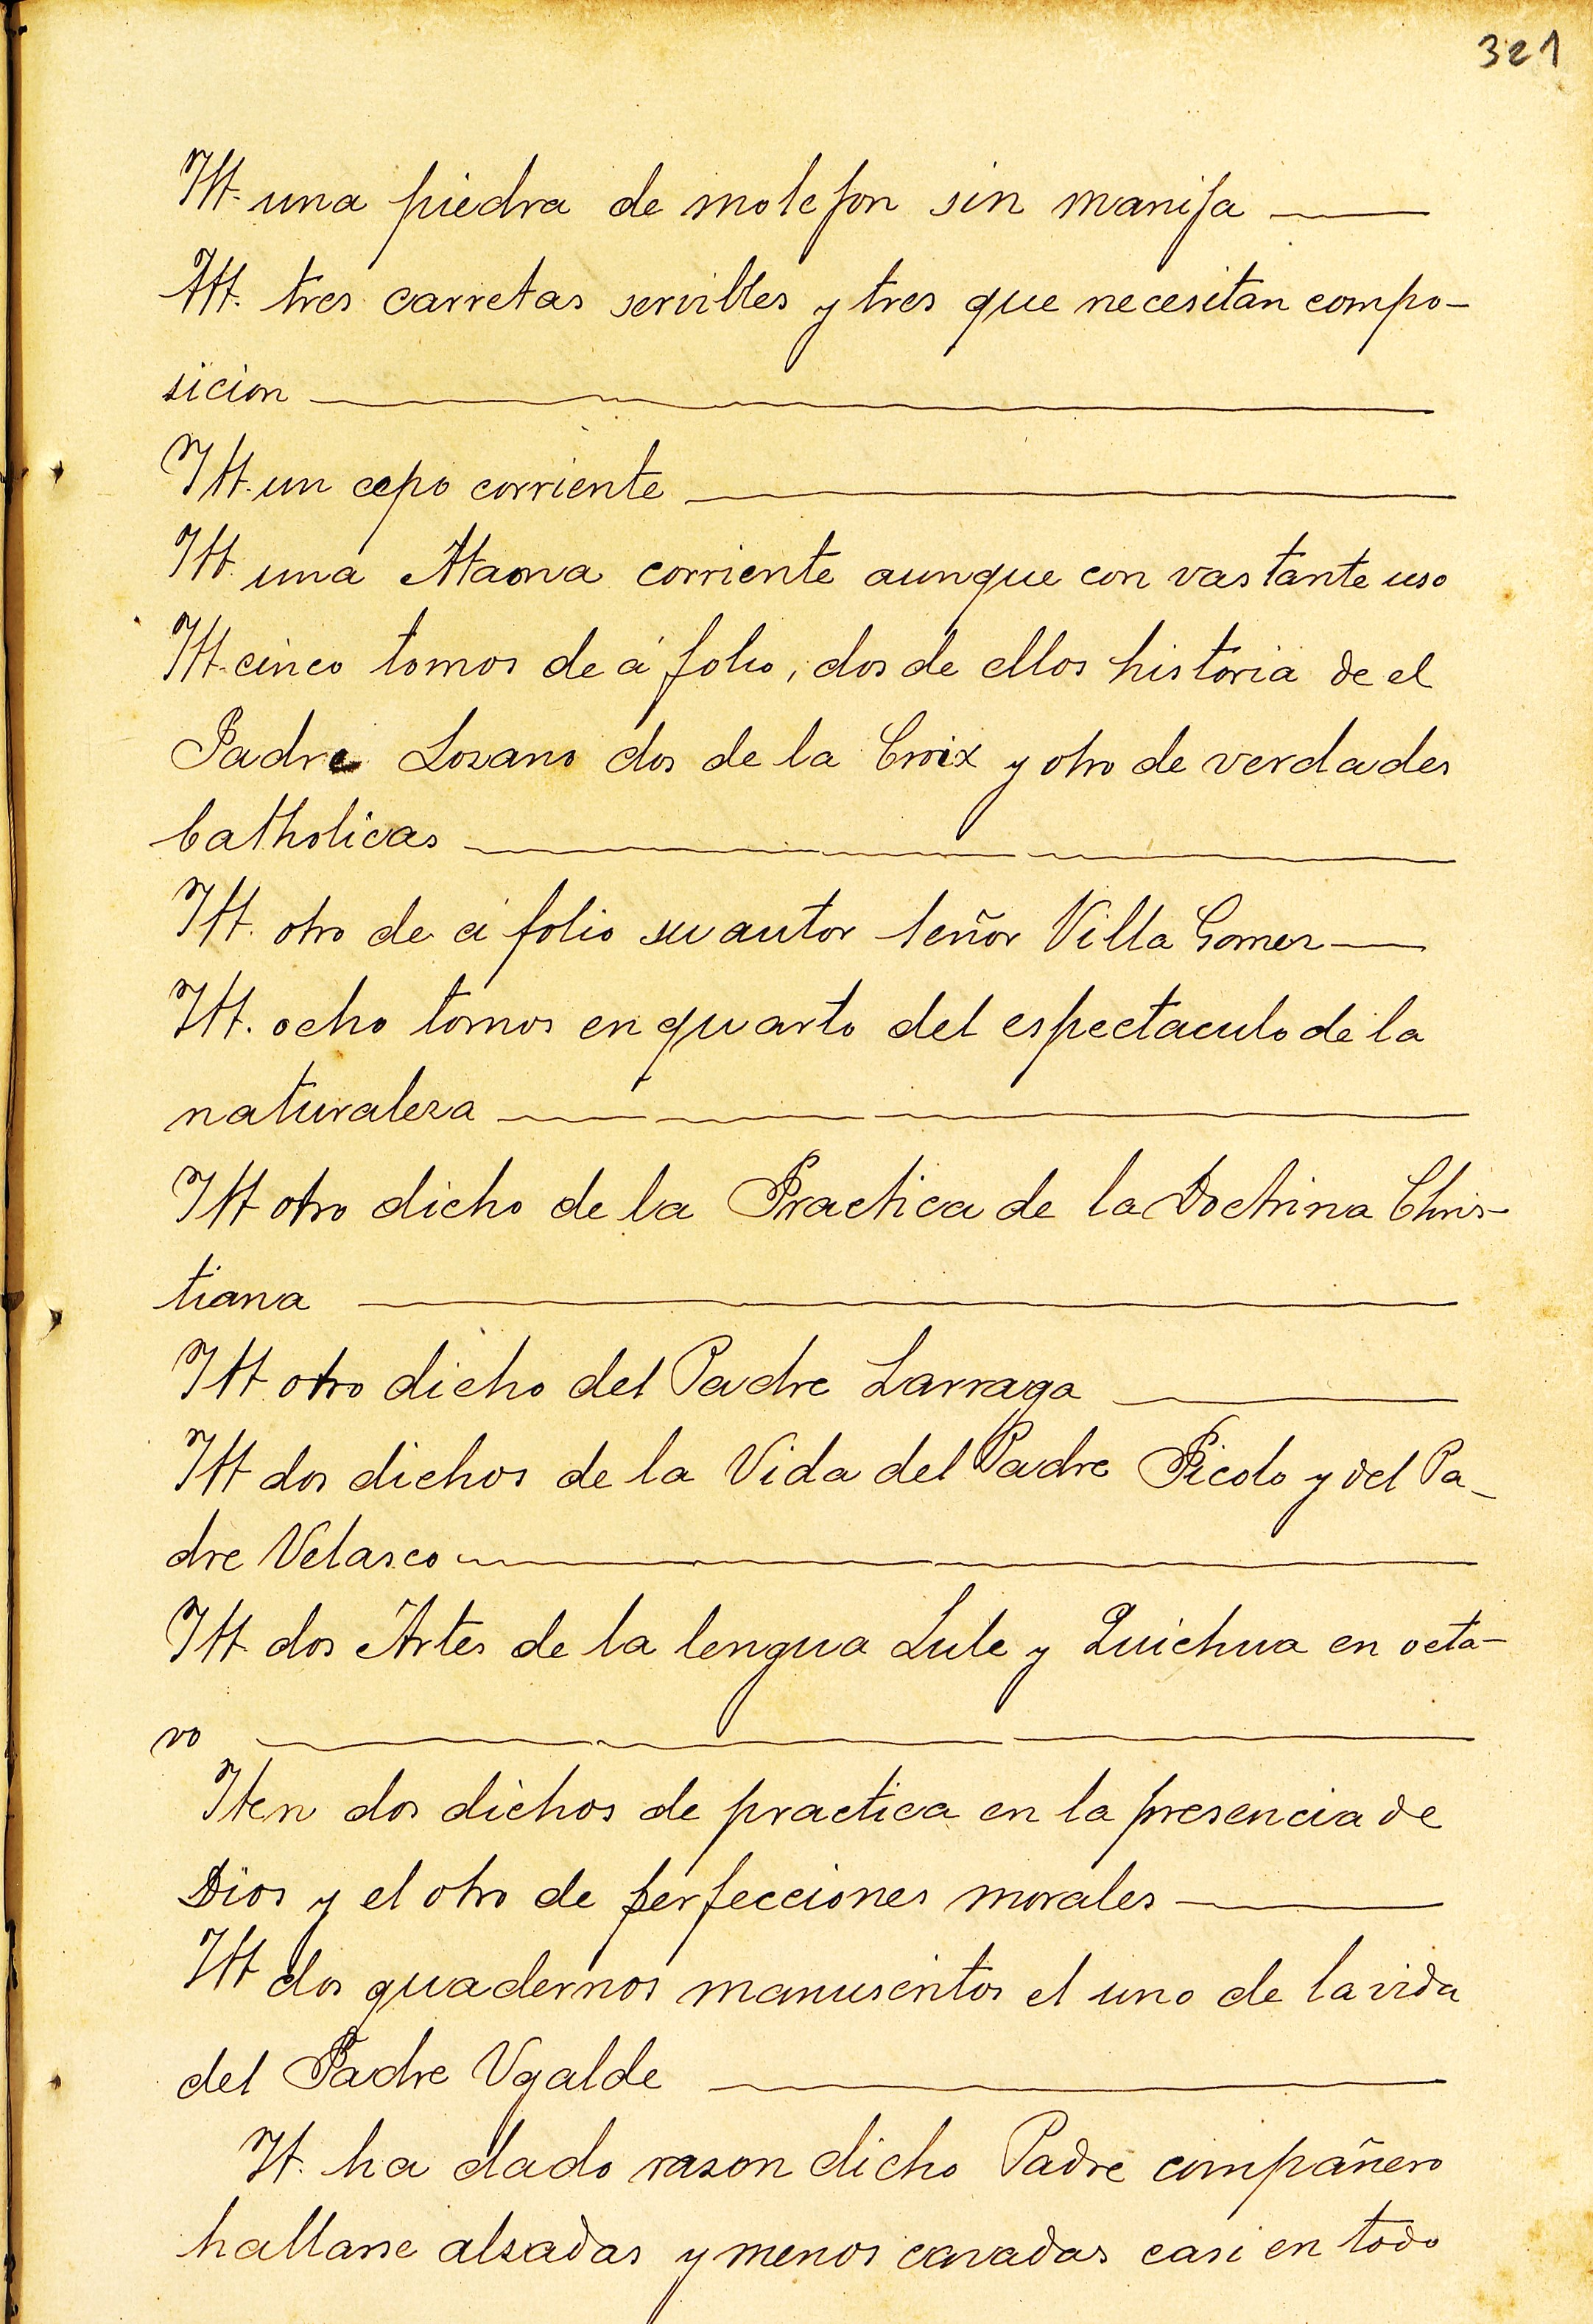 321
Itt. una piedra de molejon sin manija
Itt. tres carretas servibles y tres que necesitan compo-
sicion
Itt. un cepo corriente
Itt. una Ataona corriente aunque con vastante uso
Itt. cinco tomos de á folio, dos de ellos historia de el
Padre Lozano dos de la Croix y otro de verdades
Catholicas
Itt. otro de á folio su autor señor Villa Gomez
Itt. ocho tomos en quarto del espectaculo de la
naturaleza
Itt otro dicho de la Practica de la Doctrina Chris-
tiana
Itt otro dicho del Padre Larraga
Itt dos dichos de la Vida del Padre Picolo y del Pa-
dre Velasco
Itt dos Artes de la lengua Lule y Quichua en octa-
vo
Iten dos dichos de practica en la presencia de
Dios y el otro de perfecciones morales
Itt dos quadernos manuscritos el uno de la vida
del Padre Ugalde
It. ha dado razon dicho Padre compañero
hallarse alzadas y menos cavadas casi en todo